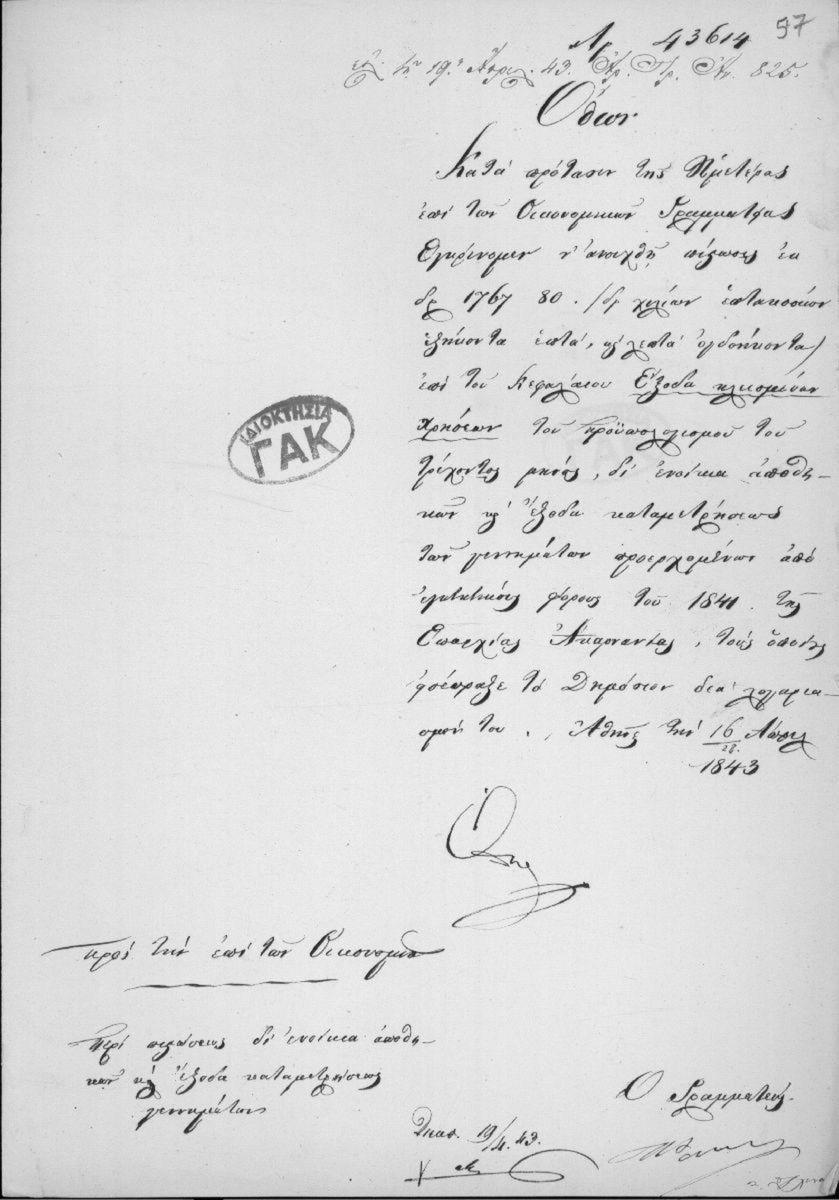 97
Αρ 43614
τὴν 19 Ἀπριλ. 43. Ἀρ. Πρ. 825.
Ὄθων
Κατὰ πρότασιν τῆς Ἡμετέρας
ἐπὶ τῶν Οἰκονομικῶν Γραμματείας
Ἐγκρίνομεν ν' ἀνοιχθῇ πίστωσις ἐκ
δρ 1767 80. /δρ χιλίων ἑπτακοσίων
ἑξήκοντα ἑπτά, κ λεπτά ὀγδοήκοντα/
ἐπὶ τοῦ Κεφαλαίου Ἔξοδα κλεισμένων
Χρήσεων τοῦ προϋπολογισμοῦ τοῦ
τρέχοντος μηνός, δι' ἐνοίκια ἀποθη-
κῶν κ' ἔξοδα καταμετρήσεως
τῶν γεννημάτων προερχομένων ἀπὸ
φόρους τοῦ 1841 τῆς
Ἐπαρχίας Ἀκαρνανίας, τοὺς ὁποίους
εἰσέπραξε τὸ Δημόσιον διὰ λογαρια-
σμοῦ του. Ἀθῆναι τὴν 16/28 Ἀπριλ
1843
ΙΔΙΟΚΤΗΣΙΑ
ΓΑΚ
Πρὸς τὴν ἐπὶ τῶν Οἰκονομικῶν
Περὶ πιστώσεως δι' ἐνοίκια ἀποθη-
κῶν κ ἔξοδα καταμετρήσεως
γεννημάτων
Ὁ Γραμματεύς.
19/4. 43.